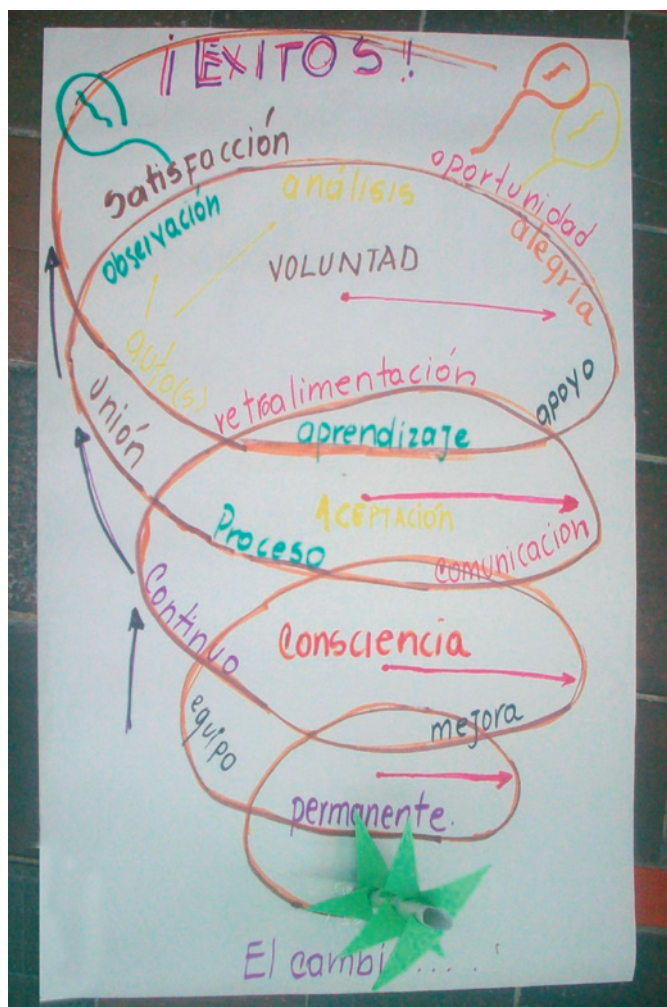 ¡EXITOS!
satisfacción
oportunidad
observación
análisis
alegría
VOLUNTAD
auto(s)
retroalimentación
apoyo
unión
aprendizaje
ACEPTACIÓN
Proceso
comunicacion
Continuo
Consciencia
equipo
mejora
permanente.
El cambi.....